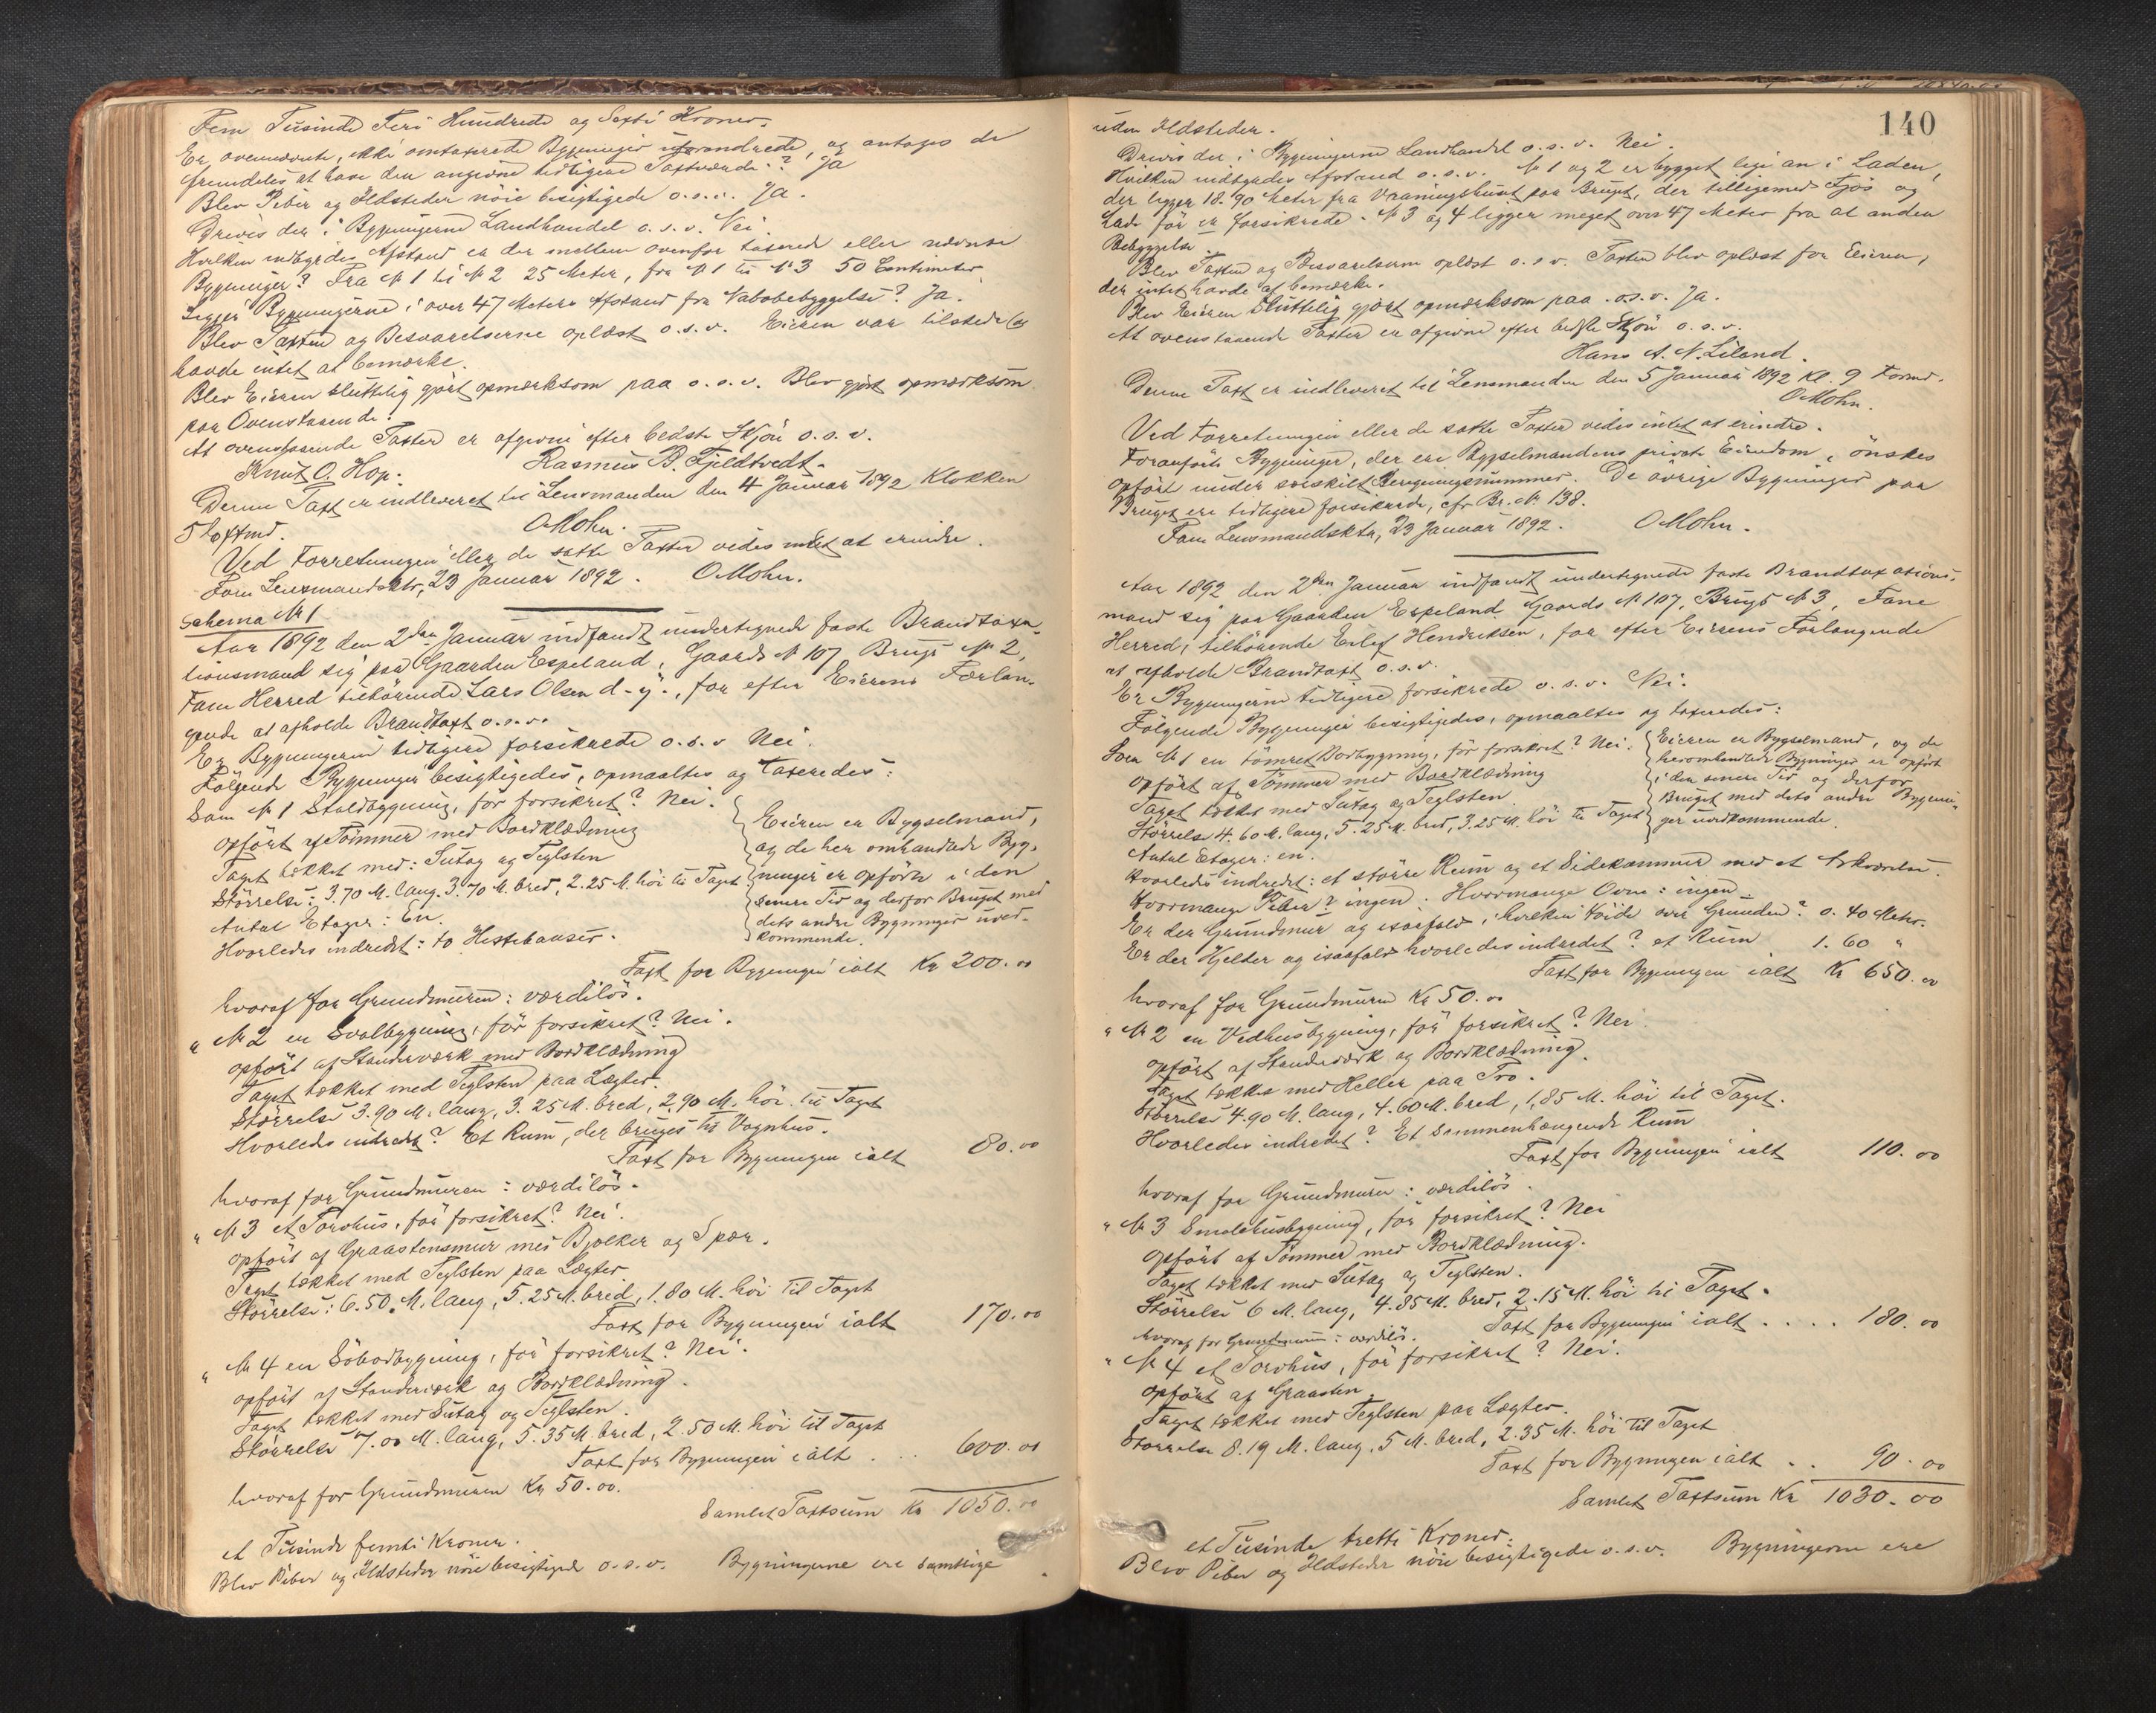 Fem Tusinde Hundrede og Sexti Kroner.
Er ovennævnte, ikke omtaxerede Bygninger uforandrede, og antages de
fremdeles at have den angivne tidligere Taxtværdi? Ja
Blev Piber og Ildsteder nöie besigtigede o.s.v. Ja.
Drives der i Bygningerne Landhandel o.s.v. Nei.
Hvilken indbyrdes Afstand er der mellem ovenfor taxerede eller nævnte
Bygninger? Fra № 1 til № 2 25 Meter, fra № 1 til № 3 50 Centimeter
Ligger Bygningerne i over 47 Meters Afstand fra Nabobebyggelse? Ja.
Blev Taxten og Besvarelserne oplæst o.s.v. Eieren var tilstede og
havde intet at bemærke.
Blev Eieren sluttelig gjort opmærksom paa o.s.v. Blev gjort opmærksom
paa Ovenstaaende.
At ovenstaaende Taxter er afgivne efter bedste Skjön o.s.v.
Knut O. Hop. Rasmus B. Fjeldtvedt.
Denne Taxt er indleveret til Lensmanden den 4 Januar 1892 Klokken
5 Eftmd. O Mohn.
Ved Forretningen eller de satte Taxter vides intet at erindre.
Fane Lensmandsktr, 23 Januar 1892. O Mohn.
Schema № 1
Aar 1892 den 2den Januar indfandt undertegnede faste Brandtaxa-
tionsmand sig paa Gaarden Espeland, Gaards № 107 Brugs № 2,
Fane Herred tilhörende Lars Olsen d-y., for efter Eierens Forlan-
gende at afholde Brandtaxt o.s.v.
Er Bygningerne tidligere forsikrede o.s.v Nei.
Fölgende Bygninger besigtigedes, opmaaltes og taxeredes:
Som № 1 Staldbygning, för forsikret? Nei.
opfört af Tömmer med Bordklædning
Taget tækket med: Sutag og Teglsten
Störrelse: 3.70 M. lang. 3.70 M. bred, 2.25 M. höi til Taget
Antal Etager: En.
Hvorledes indredet: to Hestebaaser.
Eieren er Bygselmand,
og de her omhandlede Byg-
ninger er opförte i den
senere Tid og derfor Bruget med
dets andre Bygninger uved-
kommende.
Taxt for Bygningen ialt Kr 200.00
hvoraf for Grundmuren: værdilös.
" № 2 en Svalbygning, för forsikret? Nei.
opfört af Standerværk med Bordklædning
Taget tækket med Teglsten paa Lægter.
Störrelse 3.90 M. lang, 3.25 M. bred, 2,90 M. höi til Taget
Hvorledes indredet? Et Rum, der bruges til Vognhus.
Taxt for Bygningen ialt 80.00
hvoraf for Grundmuren: værdilös.
" № 3 et Torvhus, för forsikret? Nei.
opfört af Graastensmur med Bjelker og Spær.
Taget tækket med Teglsten paa Lægter
Störrelse: 6.50 M. lang, 5.25 M. bred, 1.80 M. höi til Taget
Taxt for Bygningen ialt 170.00
" № 4 en Söbodbygning, för forsikret? Nei.
opfört af Standerværk og Bordklædning.
Taget tækket med Sutag og Teglsten.
Störrelse 7.00 M. lang, 5.35 M. bred, 2.50 M. höi til Taget
Taxt for Bygningen ialt . . . 600.00
hvoraf for Grundmuren Kr 50.00.
Samlet Taxtsum Kr 1050.00
et Tusinde femti Kroner.
Blev Piber og Ildsteder nöie besigtigede o.s.v. Bygningerne ere samtlige
140
uden Ildsteder.
Drives der i Bygningerne Landhandel o.s.v. Nei.
Hvilken indbyrdes Afstand o.s.v. № 1 og 2 er bygget lige an i Laden,
der ligger 18.90 Meter fra Vaaningshuset paa Bruget, der tilligemed Fjös og
Lade för er forsikrede. № 3 og 4 ligger meget over 47 Meter fra al anden
Bebyggelse.
Blev Taxten og Besvarelserne oplæst o.s.v. Taxten blev oplæst for Eieren,
der intet havde at bemærke.
Blev Eieren sluttelig gjort opmærksom paa o.s.v. Ja.
At ovenstaaende Taxter er afgivne efter bedste Skjön o.s.v.
Hans A. N. Liland.
Denne Taxt er indleveret til Lensmanden den 5 Januar 1892 Kl. 9 Formd.
O Mohn.
Ved Forretningen eller de satte Taxter vides intet at erindre.
Foranförte Bygninger, der ere Bygselmandens private Eiendom, önskes
opfört under særskilt Beregningsnummer. De övrige Bygninger paa
Bruget ere tidligere forsikrede, cfr Br. № 138.
Fane Lensmandsktr, 23 Januar 1892. O Mohn.
Aar 1892 den 2den Januar indfandt undertegnede faste Brandtaxations-
mand sig paa Gaarden Espeland Gaards № 107, Brugs № 3, Fane
Herred, tilhörende Eilef Hendriksen, for efter Eierens Forlangende
at afholde Brandtaxt o.s.v.
Er Bygningerne tidligere forsikrede o.s.v. Nei.
Fölgende Bygninger besigtigedes, opmaaltes og taxeredes:
Som № 1 en tömret Bodbygning, för forsikret? Nei.
opfört af Tömmer med Bordklædning
Taget tækket med Sutag og Teglsten.
Störrelse 4.60 M. lang, 5.25 M. bred, 3.25 M. höi til Taget
Eieren er Bygselmand, og de
heromhandlede Bygninger er opfört
i den senere Tid og derfor
Bruget med dets andre Bygnin-
ger uvedkommende.
Antal Etager: en.
Hvorledes indredet: et större Rum og et Sidekammer med et
Hvormange Piber? ingen. Hvormange Ovne: ingen.
Er der Grundmur og isaafald i hvilken Höide over Grunden? 0.40 Meter.
Er der Kjelder og isaafald hvorledes indredet? et Rum 1.60 "
Taxt for Bygningen ialt Kr 650.00
hvoraf for Grundmuren Kr 50.00
" № 2 en Vedhusbygning, för forsikret? Nei
opfört af Standerværk og Bordklædning.
Taget tækket med Heller paa Tro.
Störrelse 4.90 M. lang, 4.60 M. bred, 1,85 M. höi til Taget.
Hvorledes indredet? Et sammenhængende Rum
Taxt for Bygningen ialt 110.00
hvoraf for Grundmuren: værdilös.
" № 3 Smalehusbygning, för forsikret? Nei
opfört af Tömmer med Bordklædning.
Taget tækket med Sutag og Teglsten.
Störrelse 6 M. lang, 4.85 M. bred, 2.15 M. höi til Taget.
Taxt for Bygningen ialt . . . . 180.00
hvoraf for Grundmuren: værdilös.
" № 4 et Torvhus, för forsikret? Nei.
opfört af Graasten.
Taget tækket med Teglsten paa Lægter.
Störrelse 8.19 M. lang, 5 M. bred, 2.35 M. höi til Taget
Taxt for Bygningen ialt . . 90.00
Samlet Taxtsum Kr 1030.00
et Tusinde tretti Kroner.
Blev Piber og Ildsteder nöie besigtigede o.s.v. Bygningerne ere